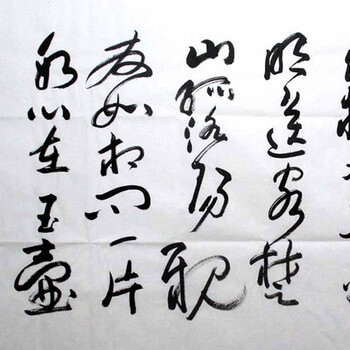 明送客楚
山孤洛阳親
友如相问一片
冰心在玉壺